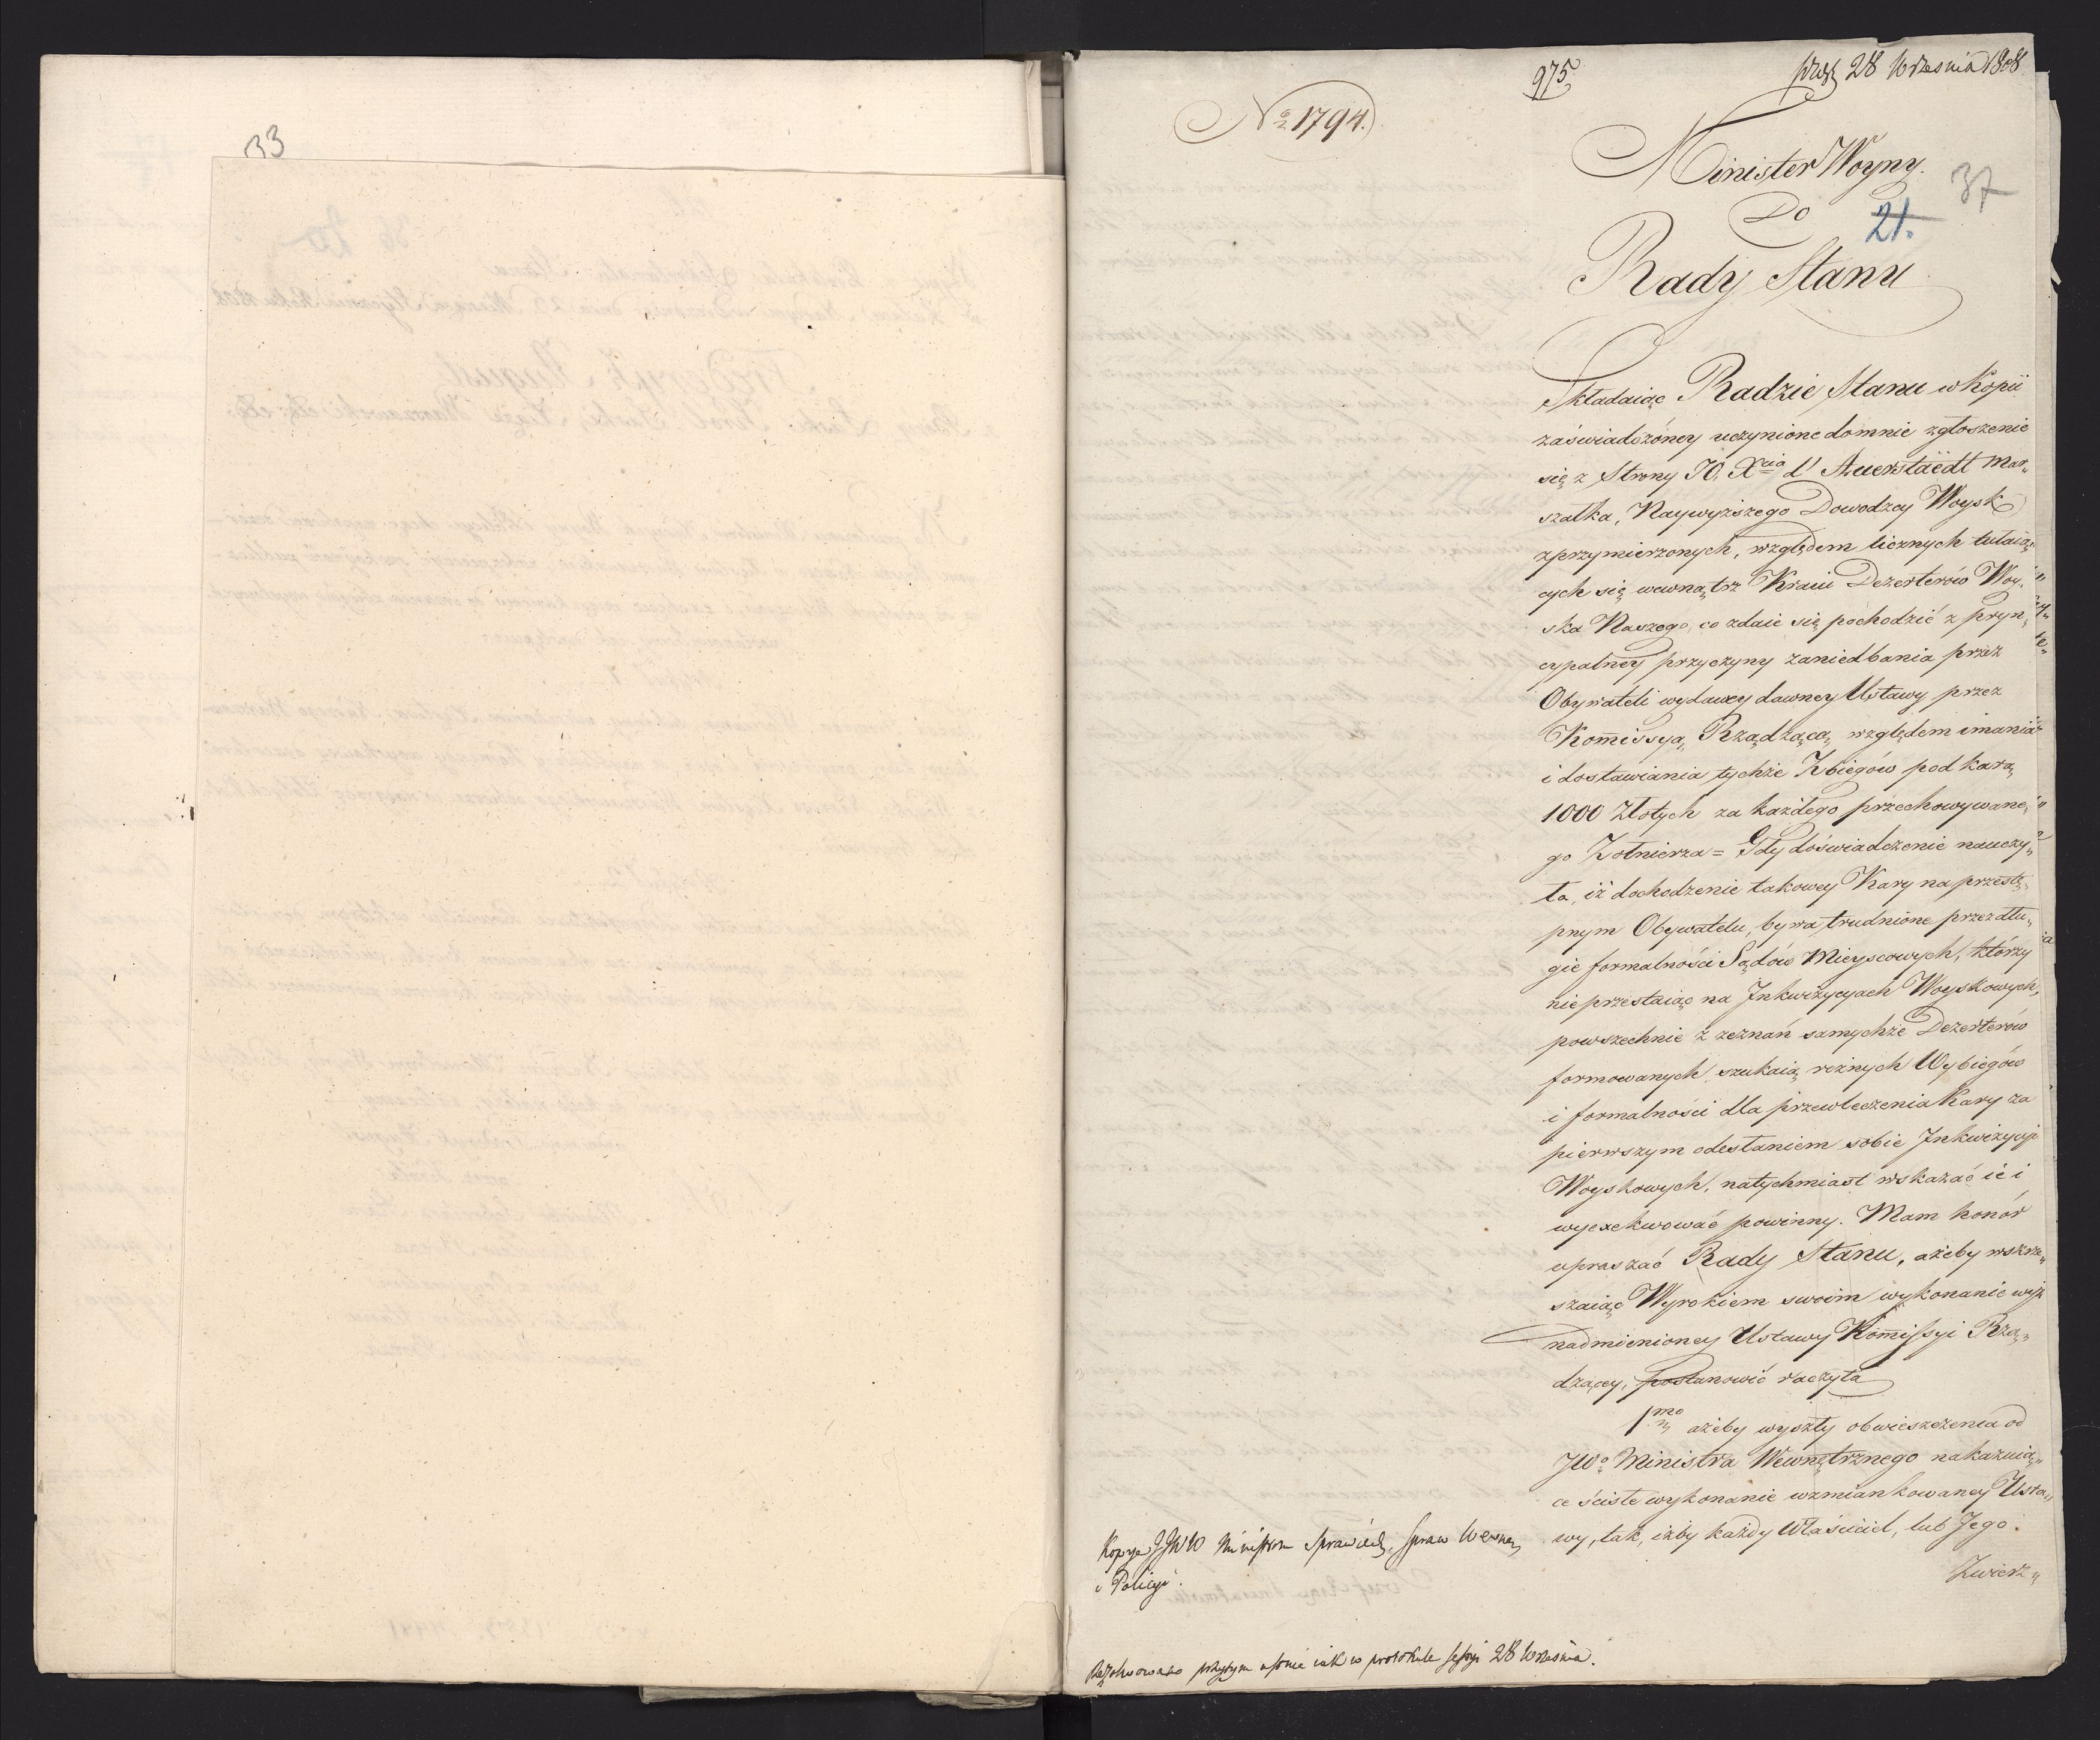 33
975.
prez 28 Września 1808
No 1794.
Minister Woyny.
37
Do
21.
Rady Stanu
Składaiąc Radzie Stanu w kopii
zaświadczóney uczynione do mnie zgłoszenie
się z Strony JO. Xcia d'Auerstaedt Mar„
szałka, Naywyższego Dowodzcy Woysk
zprzymierzonych, względem licznych tułaią„
cych się wewnątrz Kraiu Dezerterów Woy„
ska Naszego, co zdaie się pochodzić z pryn„
cypalney przyczyny zaniedbania przez
Obywateli wydaney dawney Ustawy przez
Kommissyą Rządzącą, względem imania
i dostawiania tychże Zbiegów pod karą
1000 Złotych za każdego przechowywane„
go Żołnierza = Gdy doświadczenie nauczy„
ło, iż dochodzenie takowey Kary na przestę„
pnym Obywatelu, bywa trudnione przez dłu„
gie formalności Sądów Mieyscowych, którzy
nieprzestaiąc na Inkwizycyach Woyskowych,
powszechnie z zeznań samychże Dezerterów
formowanych, szukaią rożnych Wybiegów
i formalności dla przewleczenia Kary za
pierwszym odesłaniem sobie Inkwizycyi
Woyskowych, natychmiast wskazać ié i
wyexekwować powinny. Mam honór
upraszać Rady Stanu, ażeby wskrze„
szaiąc Wyrokiem swoim wykonanie wyż
nadmienioney Ustawy Kommissyi Rzą„
dzącey, postanowić raczyła
1mo ażeby wyszły obwieszczenia od
JWo Ministra Wewnętrznego nakazuią„
ce ściste wykonanie wzmiankowaney Usta„
wy, tak, iżby każdy Właściciel, lub Jego
Zwierz„
Kopye JJWW Ministrom Sprawiedl, Spraw Wewnęn
i Policyi.
Rezolwowano przytym ustnie iak w protokule sessyi 28 Września.